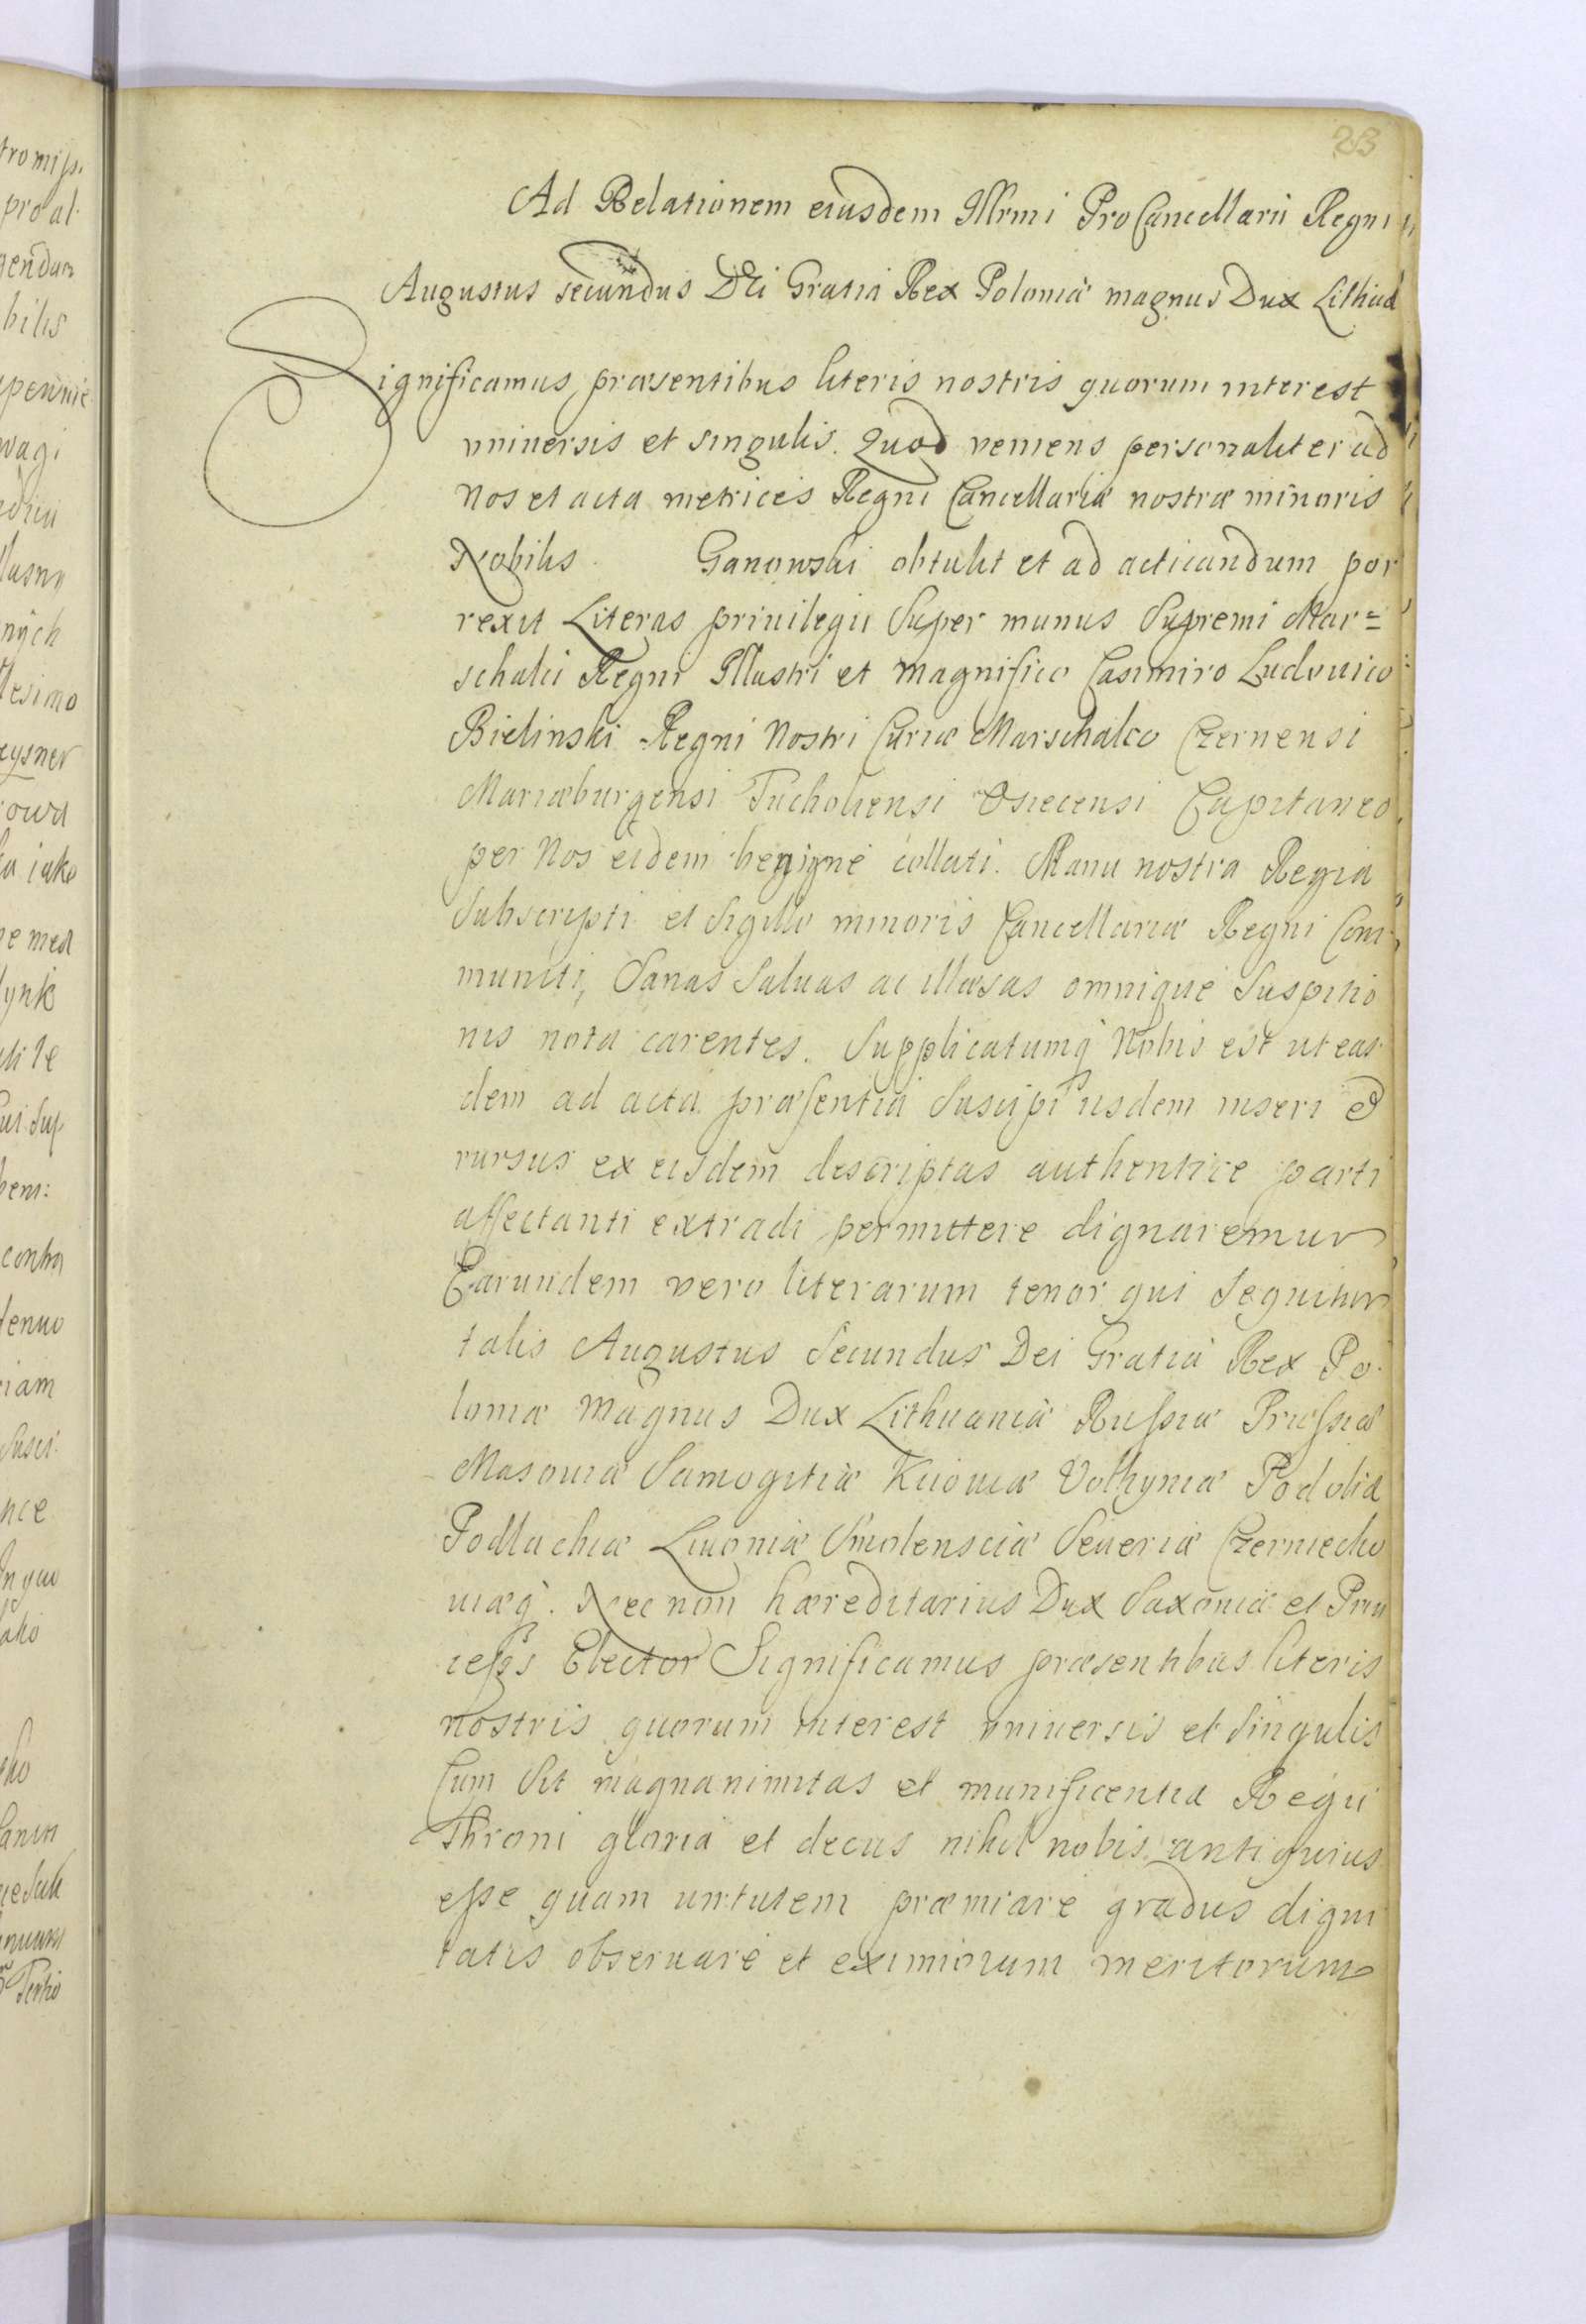 23
Ad Relationem eiusdem Illrmi ProCancellarii Regni
Augustus secundus DEi Gratia Rex Poloniæ magnus Dux Lithuæ
Significamus præsentibus literis nostris quorum interest
vniuersis et singulis. Quod veniens personaliter ad
Nos et acta metrices Regni Cancellariæ nostræ minoris
Nobilis Ganowski obtulit et ad acticandum por
rexit Literas priuilegii Super munus Supremi Mar=
schalci Regni Illustri et Magnifico Casimiro Ludouico
Bielinski Regni Nostri Curiæ Marschalco Czernensi
Mariæburgensi Tucholiensi Osiecensi Capitaneo
per Nos eidem benigne collati. Manu nostra Regia
Subscripti et Sigillo minoris Cancellariæ Regni Com
muniti, Sanas Saluas ac illæsas omnique Suspitio
nis nota carentes. Supplicatumq Nobis est ut eas
dem ad acta præsentia Suscipi iisdem inseri et
rursus ex eisdem descriptas authentice parti
affectanti extradi permittere dignaremur
Earundem vero literarum tenor qui Sequitur
talis Augustus Secundus Dei Gratia Rex Po
loniæ Magnus Dux Lithuaniæ Russiæ Prussiæ
Masouiæ Samogitiæ Kiiouiæ Volhyniæ Podoliæ
Podlachiæ Liuoniæ Smolensciæ Seueriæ Czerniecho
uiæq. Nec non hæreditarius Dux Saxoniæ et Prin
ceps Elector Significamus præsentibus literis
nostris quorum interest vniuersis et Singulis
Cum Sit magnanimitas et munificentia Regii
Throni gloria et decus nihil nobis antiquius
esse quam uirtutem præmiare gradus digni
tatis obseruare et eximiorum meritorum